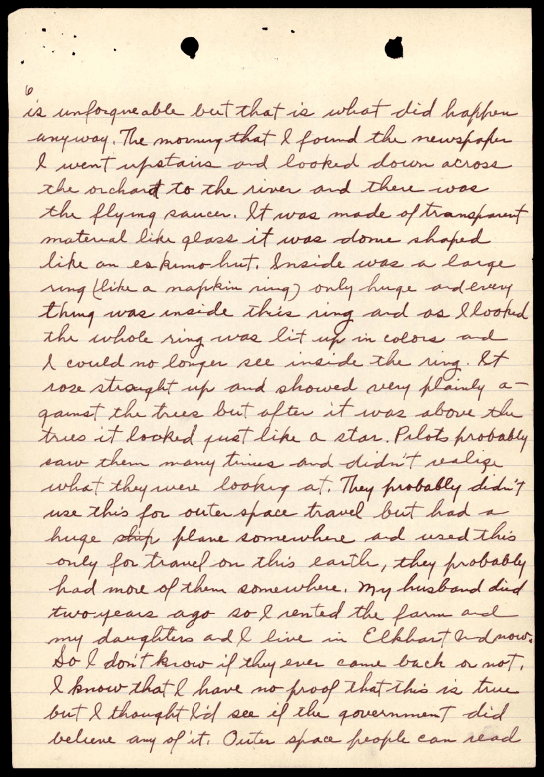 6
is unforgiveable but that is what did happen
anyway. The morning that I found the newspaper
I went upstairs and looked down across
the orchard to the river and there was
the flying saucer. It was made of transparent
material like glass it was dome shaped
like an eskimo hut. Inside was a large
ring (like a napkin ring) only huge and every
thing was inside this ring and as I looked
the whole ring was lit up in colors and
I could no longer see inside the ring. It
rose straight up and showed very plainly a-
gainst the trees but after it was above the
trees it looked just like a star. Pilots probably
saw them many times and didn't realize
what they were looking at. They probably didn't
use this for outer space travel but had a
huge ship plane somewhere and used this
only for travel on this earth, they probably
had more of them somewhere. My husband died
two years ago so I rented the farm and
my daughters and I live in Elkhart Ind now.
So I don't know if they ever came back or not.
I know that I have no proof that this is true
but I thought I'd see if the government did
believe any of it. Outer space people can read